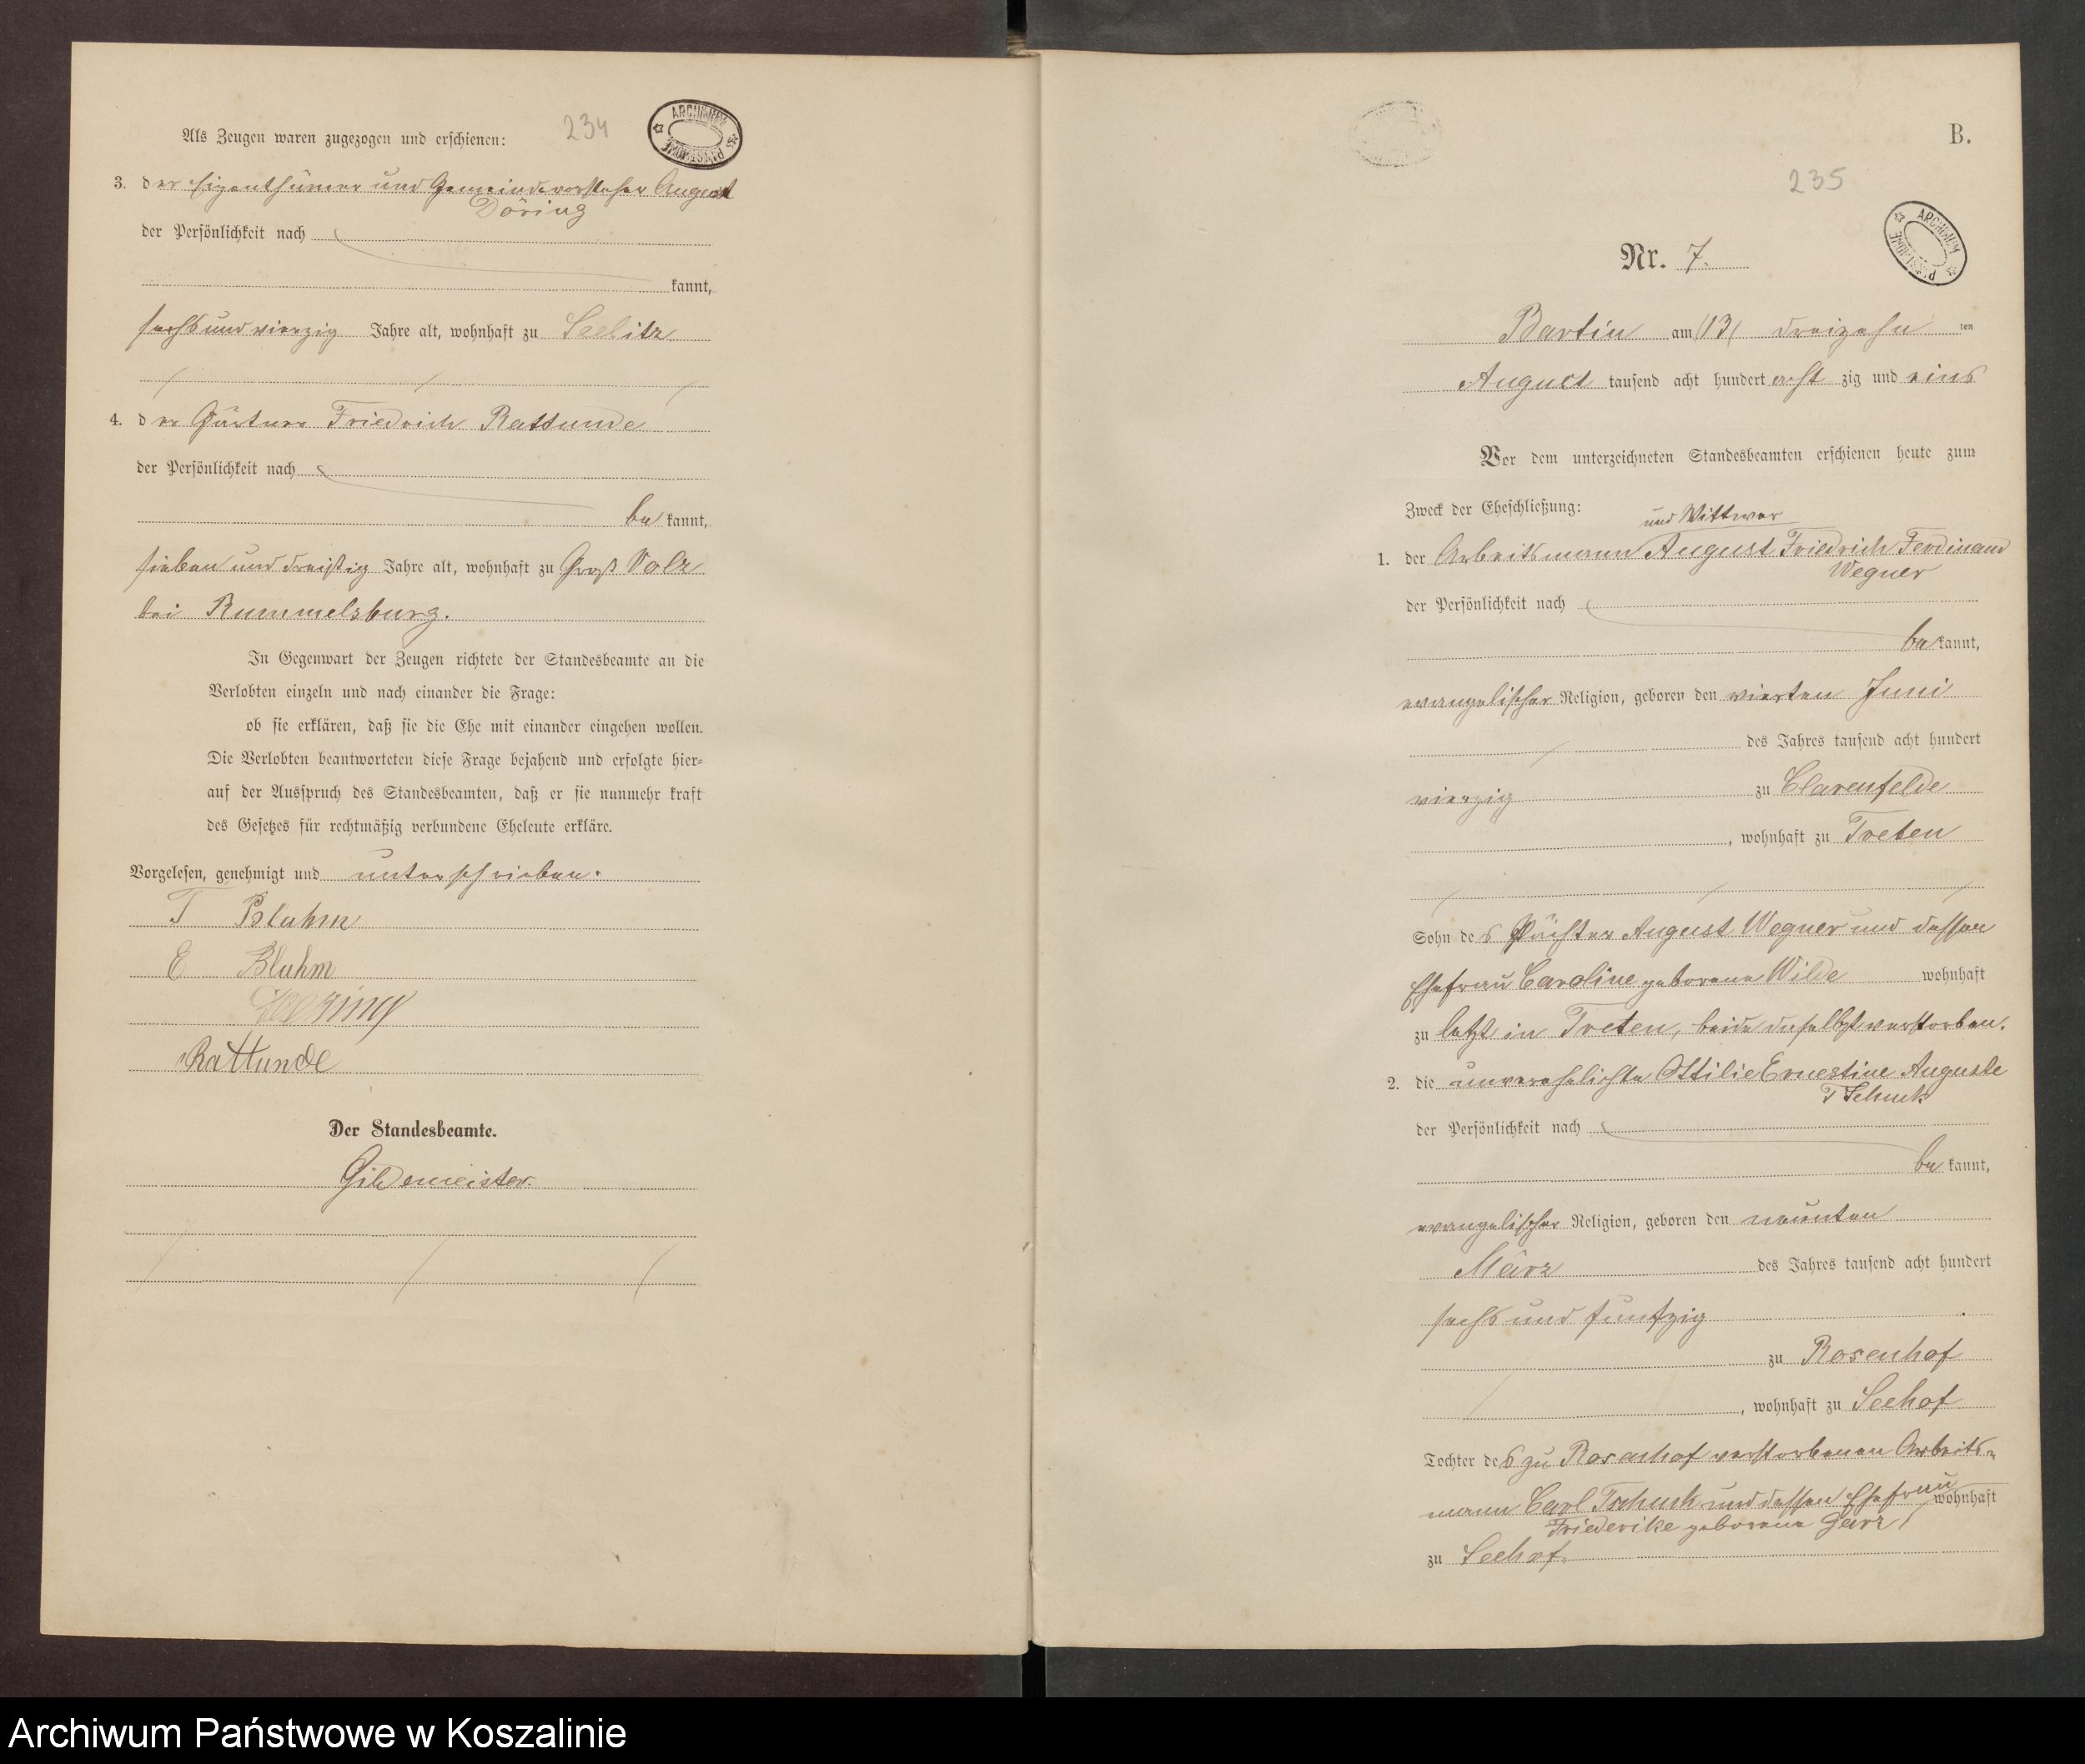 234
ARCHIWUM PAŃSTWOWE
Als Zeugen waren zugezogen und erschienen:
3. der Eigenthümer und Gemeindevorsteher August
Döring
der Persönlichkeit nach
kannt,
sechs und vierzig Jahre alt, wohnhaft zu Seelitz
4. der Gärtner Friedrich Rattunde
der Persönlichkeit nach
be kannt,
sieben und dreißig Jahre alt, wohnhaft zu Groß Volz
bei Rummelsburg.
In Gegenwart der Zeugen richtete der Standesbeamte an die
Verlobten einzeln und nach einander die Frage:
ob sie erklären, daß sie die Ehe mit einander eingehen wollen.
Die Verlobten beantworteten diese Frage bejahend und erfolgte hier-
auf der Ausspruch des Standesbeamten, daß er sie nunmehr kraft
des Gesetzes für rechtmäßig verbundene Eheleute erkläre.
Vorgelesen, genehmigt und unterschrieben.
T Bluhm
E Bluhm
Rattunde
Der Standesbeamte.
Gildemeister.
B.
235
ARCHIWUM PAŃSTWOWE
Nr. 7.
Bartin am (13) dreizehn ten
August tausend acht hundert acht zig und eins
Vor dem unterzeichneten Standesbeamten erschienen heute zum
Zweck der Eheschließung:
und Wittwer
1. der Arbeitsmann August Friedrich Ferdinand
Wegner
der Persönlichkeit nach
be kannt,
evangelischer Religion, geboren den vierten Juni
des Jahres tausend acht hundert
vierzig zu Clarenfelde
, wohnhaft zu Treten
Sohn des Pächter August Wegner und dessen
Ehefrau Caroline geborene Wilde wohnhaft
zu letzt in Treten, beide daselbst verstorben.
2. die unverehelichte Ottilie Ernestine Auguste
Tschuck
der Persönlichkeit nach
be kannt,
evangelischer Religion, geboren den neunten
März des Jahres tausend acht hundert
sechs und funfzig
zu Rosenhof
, wohnhaft zu Seehof
Tochter des zu Rosenhof verstorbenen Arbeits-
mann Carl Tschuck und dessen Ehefrau wohnhaft
Friederike geborene Garz
zu Seehof.
Archiwum Państwowe w Koszalinie